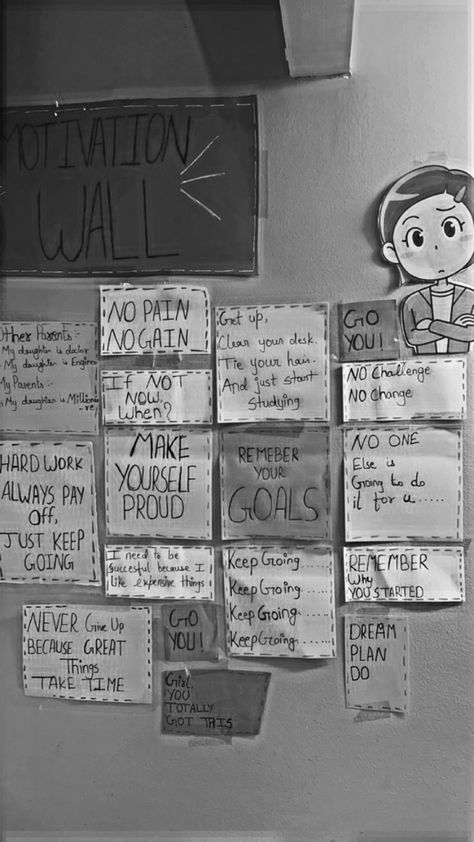 MOTIVATION
WALL
NO PAIN
NO GAIN
Get up,
Clear your desk.
Tie your hair.
And just start
studying
GO
YOU!
Other Parents:-
My daughter is doctor
My daughter is Engineer
My Parents:-
My daughter is Millionai
-re
If NOT
NOW.
When?
NO Challenge
NO Change
HARD WORK
ALWAYS PAY
OFF,
JUST KEEP
GOING
MAKE
YOURSELF
PROUD
REMEBER
YOUR
GOALS
NO ONE
Else is
Going to do
it for u.....
I need to be
Succesful because I
like expensive things
Keep Going....
Keep Going.....
Keep Going.....
Keep Going......
REMEMBER
Why
YOU STARTED
NEVER Give Up
BECAUSE GREAT
Things
TAKE TIME
GO
YOU!
DREAM
PLAN
DO
Girl,
YOU
TOTALLY
GOT THIS